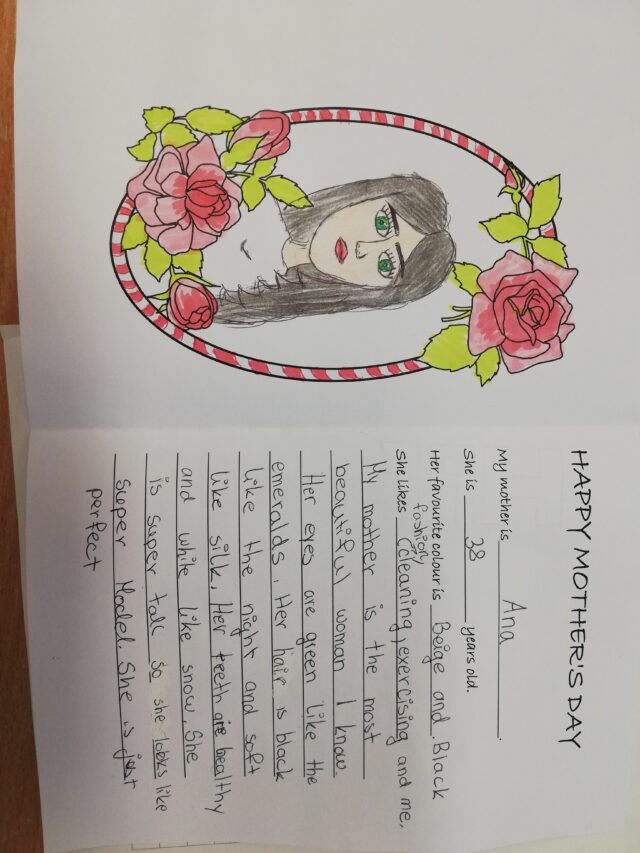 HAPPY MOTHER'S DAY
My mother is Ana.
She is 38 years old.
Her favourite colour is Beige and Black
She likes cleaning, exercising and me,
fashion
My mother is the most
beautiful woman I know
Her eyes are green like the
emeralds. Her hair is black
like the night and soft
like silk. Her teeth are healthy
and white like snow. She
is super tall so she looks like
super Model. She is just
perfect